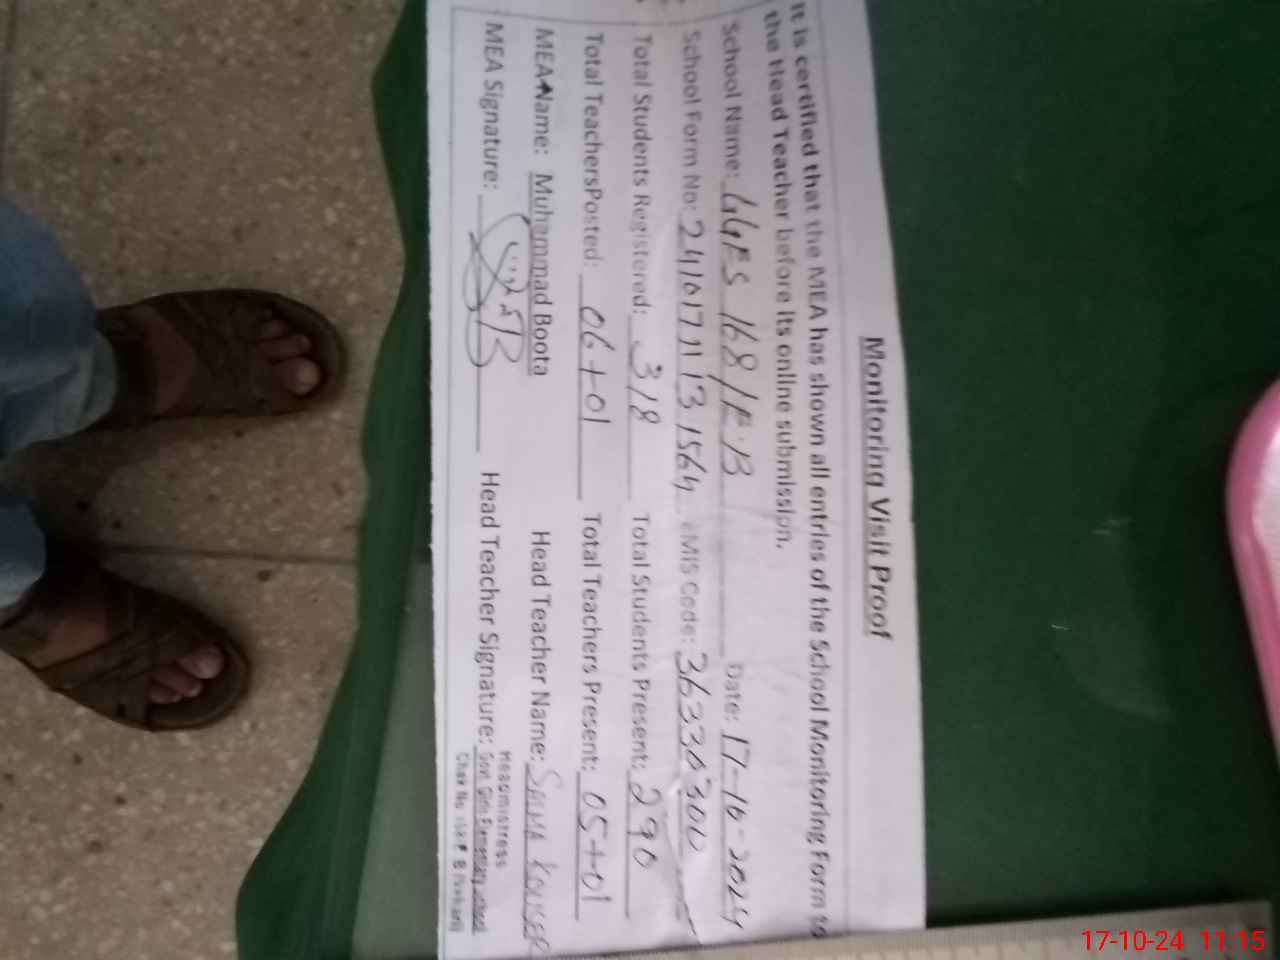 Monitoring Visit Proof
It is certified that the MEA has shown all entries of the School Monitoring Form to
the Head Teacher before its online submission.
School Name: GGES 168/E.B Date: 17-10-2024
School Form No: 241017 113 1564 EMIS Code: 36330300
Total Students Registered: 318 Total Students Present: 290
Total TeachersPosted: 06+01 Total Teachers Present: 05+01
MEA Name: Muhammad Boota Head Teacher Name: SAIMA KOUSER
MEA Signature: Head Teacher Signature:
Headmistress
Govt. Girls Elementary School
Chak No. 168/E.B
17-10-24 11:15